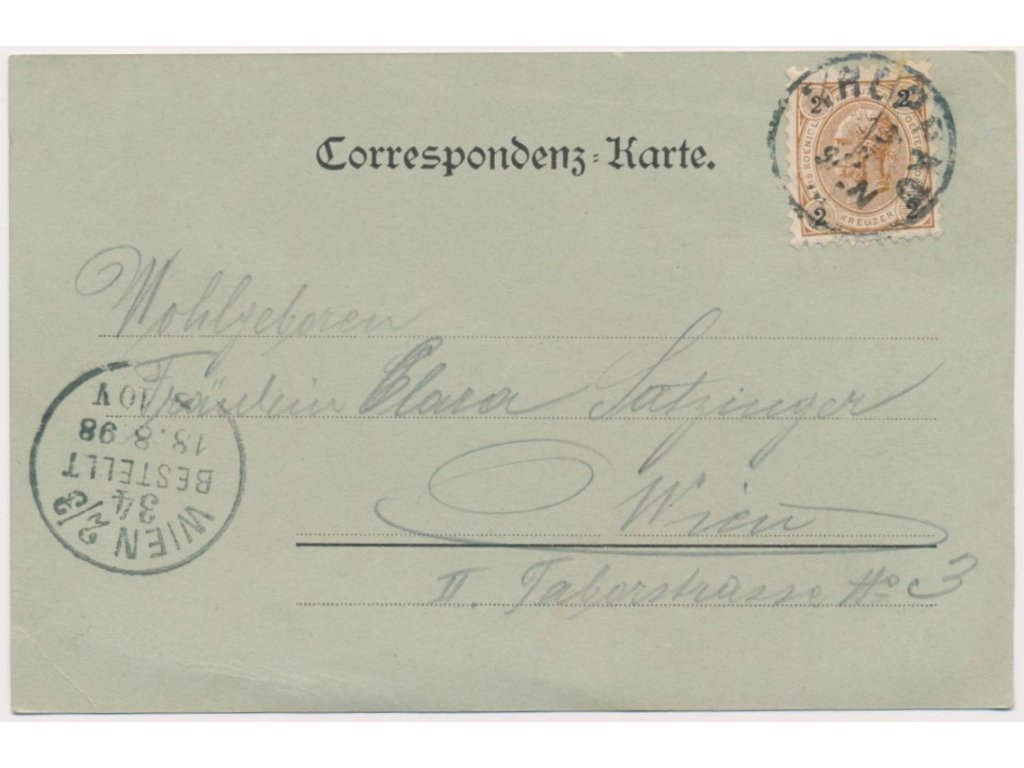 Correspondenz-Karte.
2 2
KREUZER
2 2
Wohlgeboren
Fräulein Clara Satzinger
Wien
II. Taborstrasse No 3
WIEN 2/3
34
BESTELLT
18.8.98
8 10V